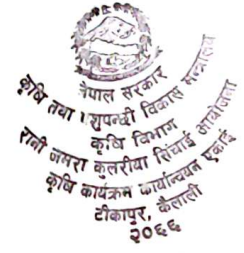 नेपाल सरकार
कृषि तथा पशुपन्छी विकास मन्त्रालय
कृषि विभाग
रानी जमरा कुलरीया सिंचाई आयोजना
कृषि कार्यक्रम कार्यान्वयन एकाई
टीकापुर, कैलाली
२०६६